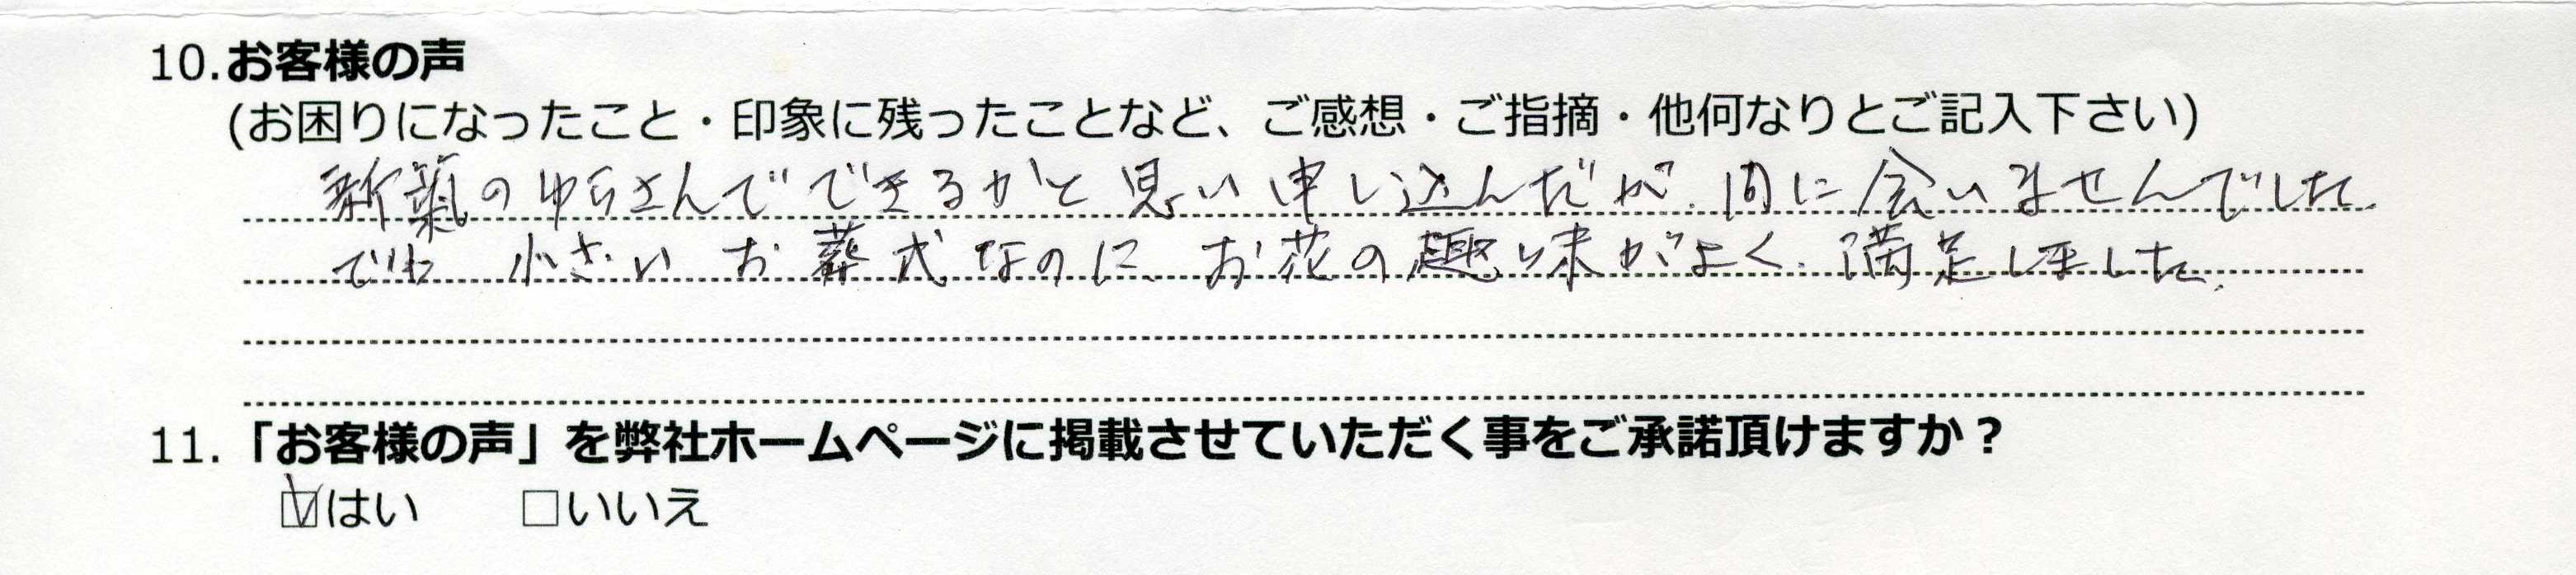 10.お客様の声
(お困りになったこと・印象に残ったことなど、ご感想・ご指摘・他何なりとご記入下さい)
のゆうさんでできるかと思い申し込んだが、間に会いませんでした
でも 小さい お葬式なのに、お花の趣味がよく、満足しました。
11.「お客様の声」を弊社ホームページに掲載させていただく事をご承諾頂けますか？
☑はい □いいえ